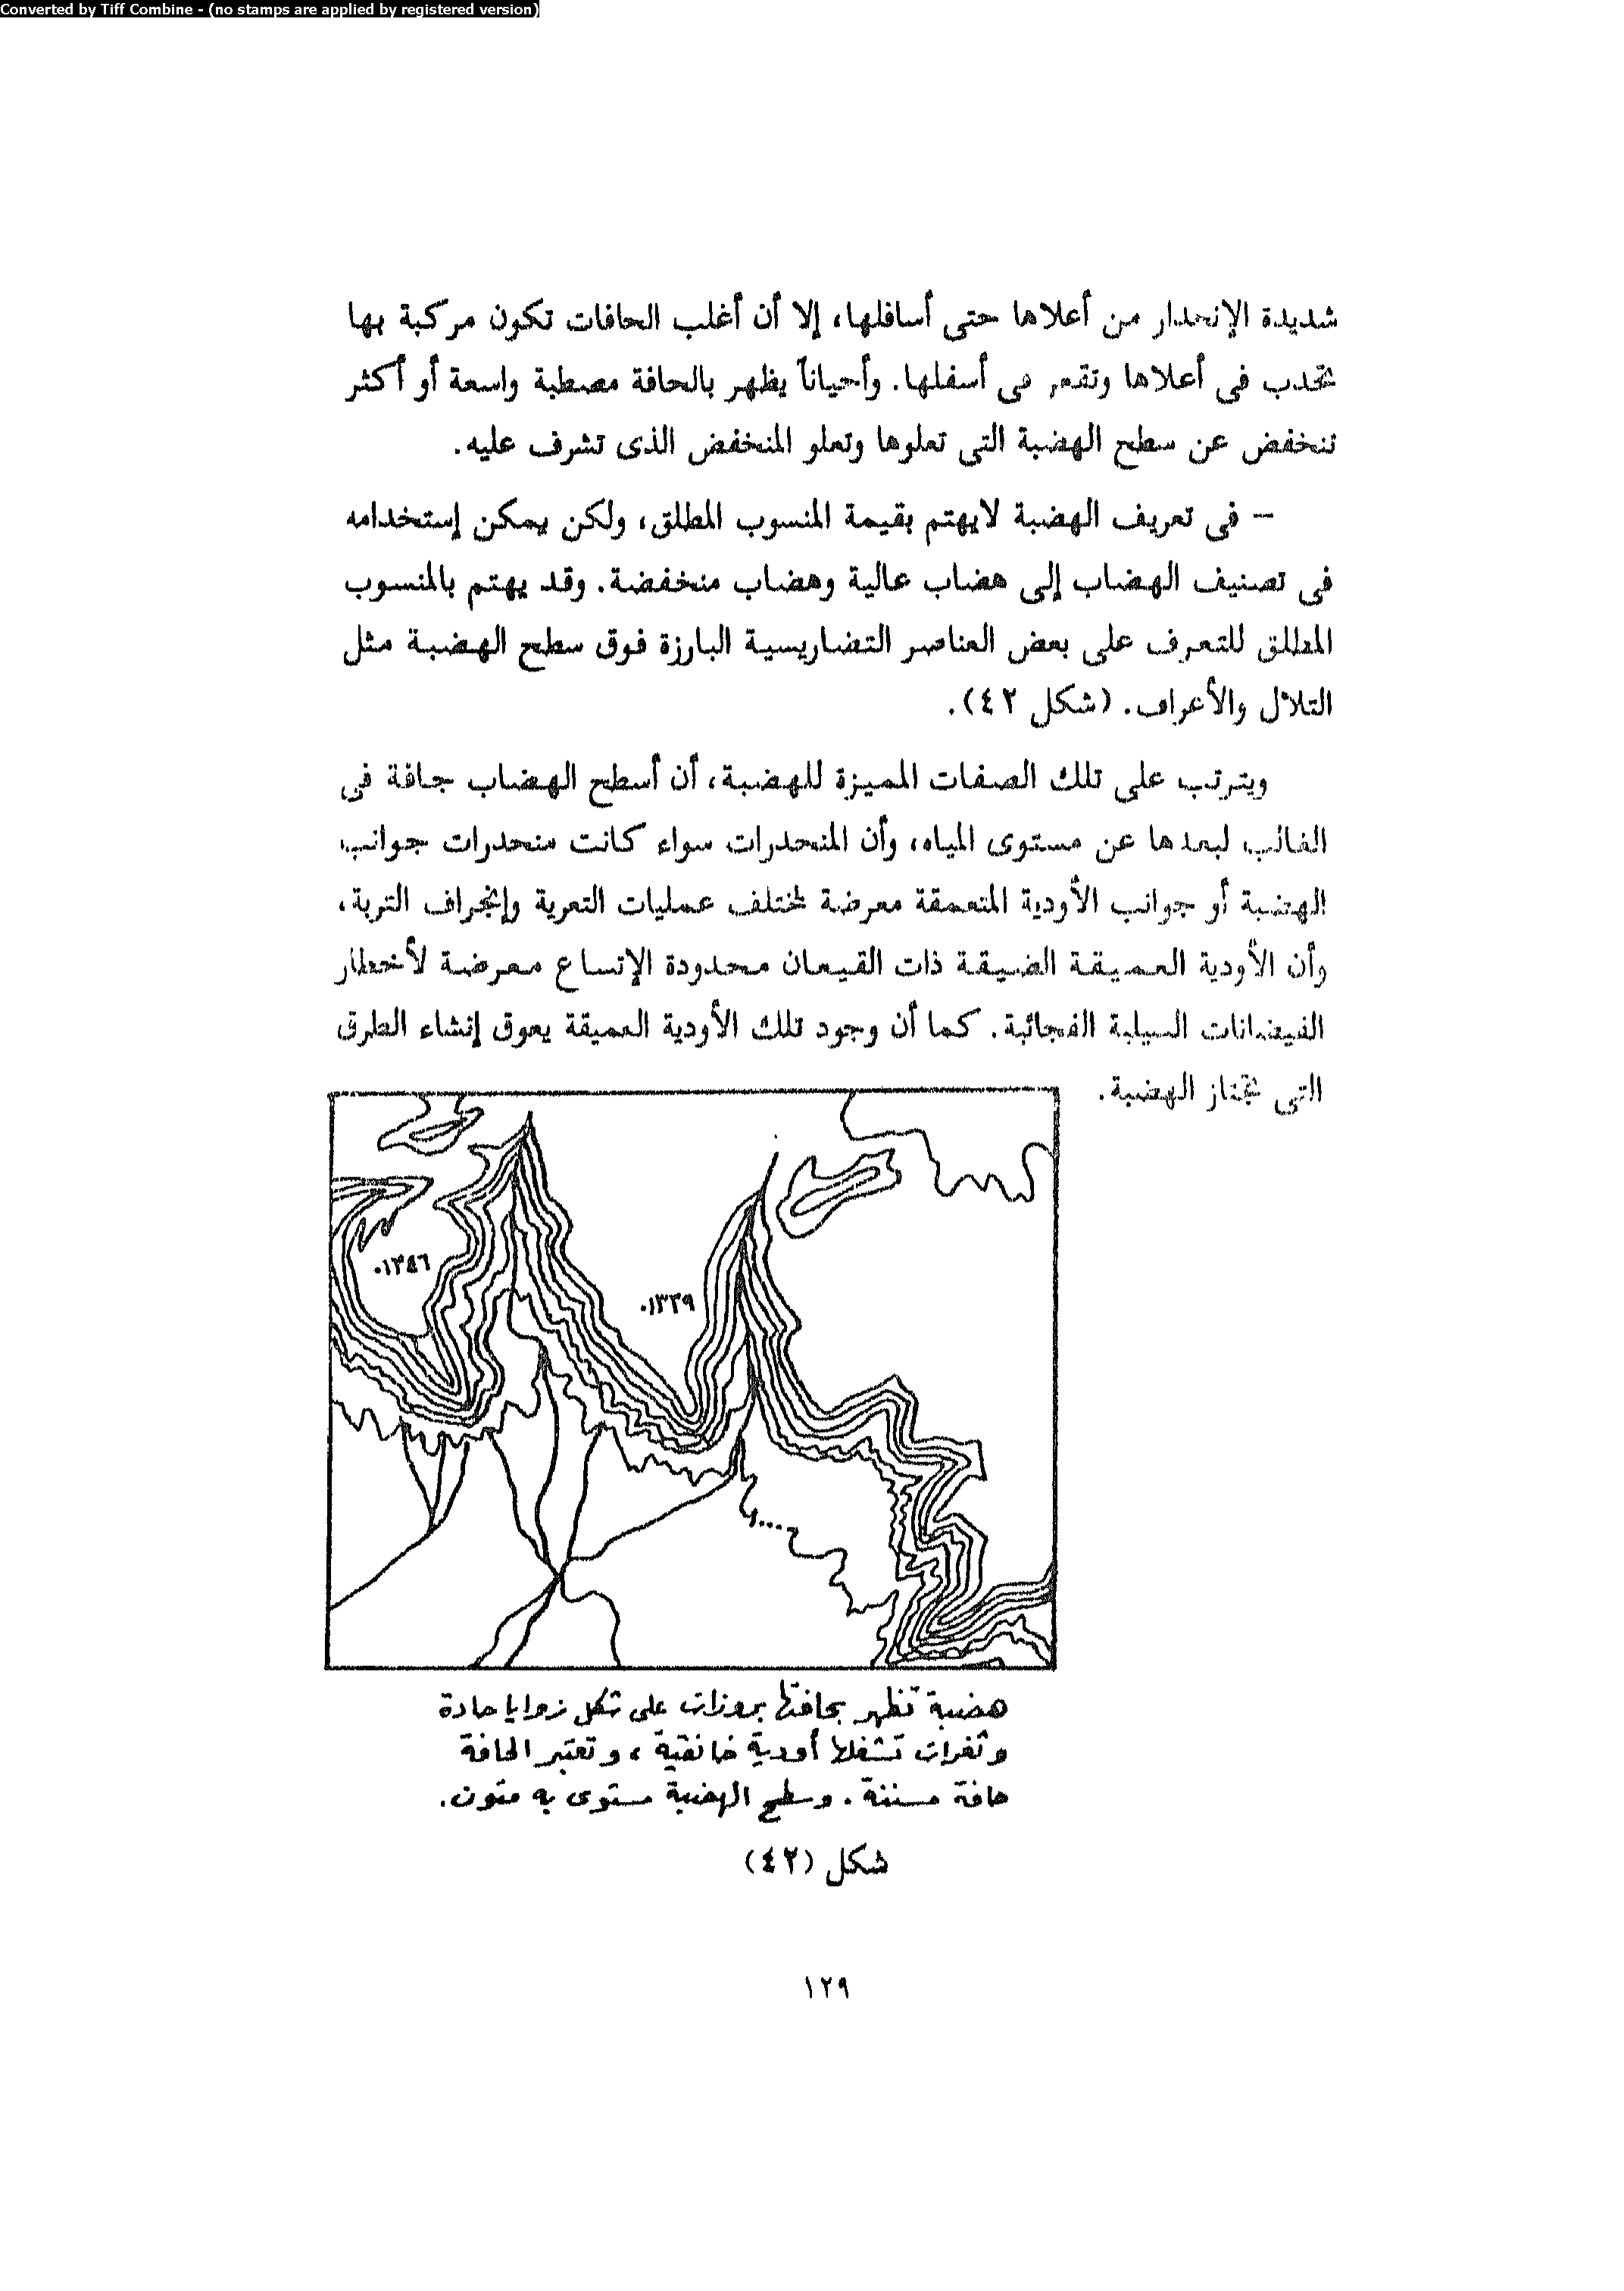 Converted by Tiff Combine - (no stamps are applied by registered version)
شديدة الإنحدار من أعلاها حتى أسافلها، إلا أن أغلب الحافات تكون مركبة بها
تحدب فى أعلاها وتقعر فى أسفلها. وأحياناً يظهر بالحافة مصطبة واسعة أو أكثر
تنخفض عن سطح الهضبة التى تعلوها وتعلو المنخفض الذى تشرف عليه.
– فى تعريف الهضبة لايهتم بقيمة المنسوب المطلق، ولكن يمكن إستخدامه
فى تصنيف الهضاب إلى هضاب عالية وهضاب منخفضة. وقد يهتم بالمنسوب
المطلق للتعرف على بعض العناصر التضاريسية البارزة فوق سطح الهضبة مثل
التلال والأعراف. (شكل ٤٢).
ويترتب على تلك الصفات المميزة للهضبة، أن أسطح الهضاب جافة فى
الغالب لبعدها عن مستوى المياه، وأن المنحدرات سواء كانت منحدرات جوانب
الهضبة أو جوانب الأودية المتعمقة معرضة لمختلف عمليات التعرية وإنجراف التربة،
وأن الأودية العميقة الضيقة ذات القيعان محدودة الإتساع معرضة لأخطار
الفيضانات السيلية الفجائية. كما أن وجود تلك الأودية العميقة يعوق إنشاء الطرق
التى تجتاز الهضبة.
.١٣٤٦
.١٣٣٩
هضبة تظهر بحافتها بروزات على شكل زوايا حادة
وثغرات تشغلها أودية خانقية، وتعتبر الحافة
حافة مسننة. وسطح الهضبة مستوى به متون.
شكل (٤٢)
١٢٩